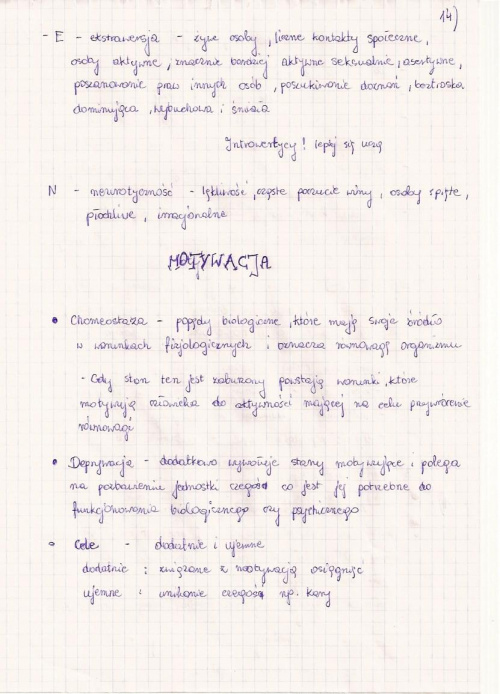 14)
- E - ekstrawersja - żywe osoby, liczne kontakty społeczne,
osoby aktywne, znacznie bardziej aktywne seksualnie, asertywne,
poszanowanie praw innych osób, poszukiwanie doznań, beztroska
dominująca, wybuchowa i śmiała
Introwertycy! lepiej się uczą
N - neurotyczność - lękliwość, częste poczucie winy, osoby spięte,
płochliwe, irracjonalne
MOTYWACJA
• Chomeostaza - popędy biologiczne, które mają swoje źródło
w warunkach fizjologicznych i oznacza równowagę organizmu
- Gdy stan ten jest zaburzany powstają warunki, które
motywują człowieka do aktywności mającej na celu przywrócenie
równowagi
• Deprywacja - dodatkowo wywołuje stany motywujące i polega
na pozbawieniu jednostki czegoś co jest jej potrzebne do
funkcjonowania biologicznego czy psychicznego
• Cele - dodatnie i ujemne
dodatnie : związane z motywacją osiągnięć
ujemne : unikanie czegoś np. kary